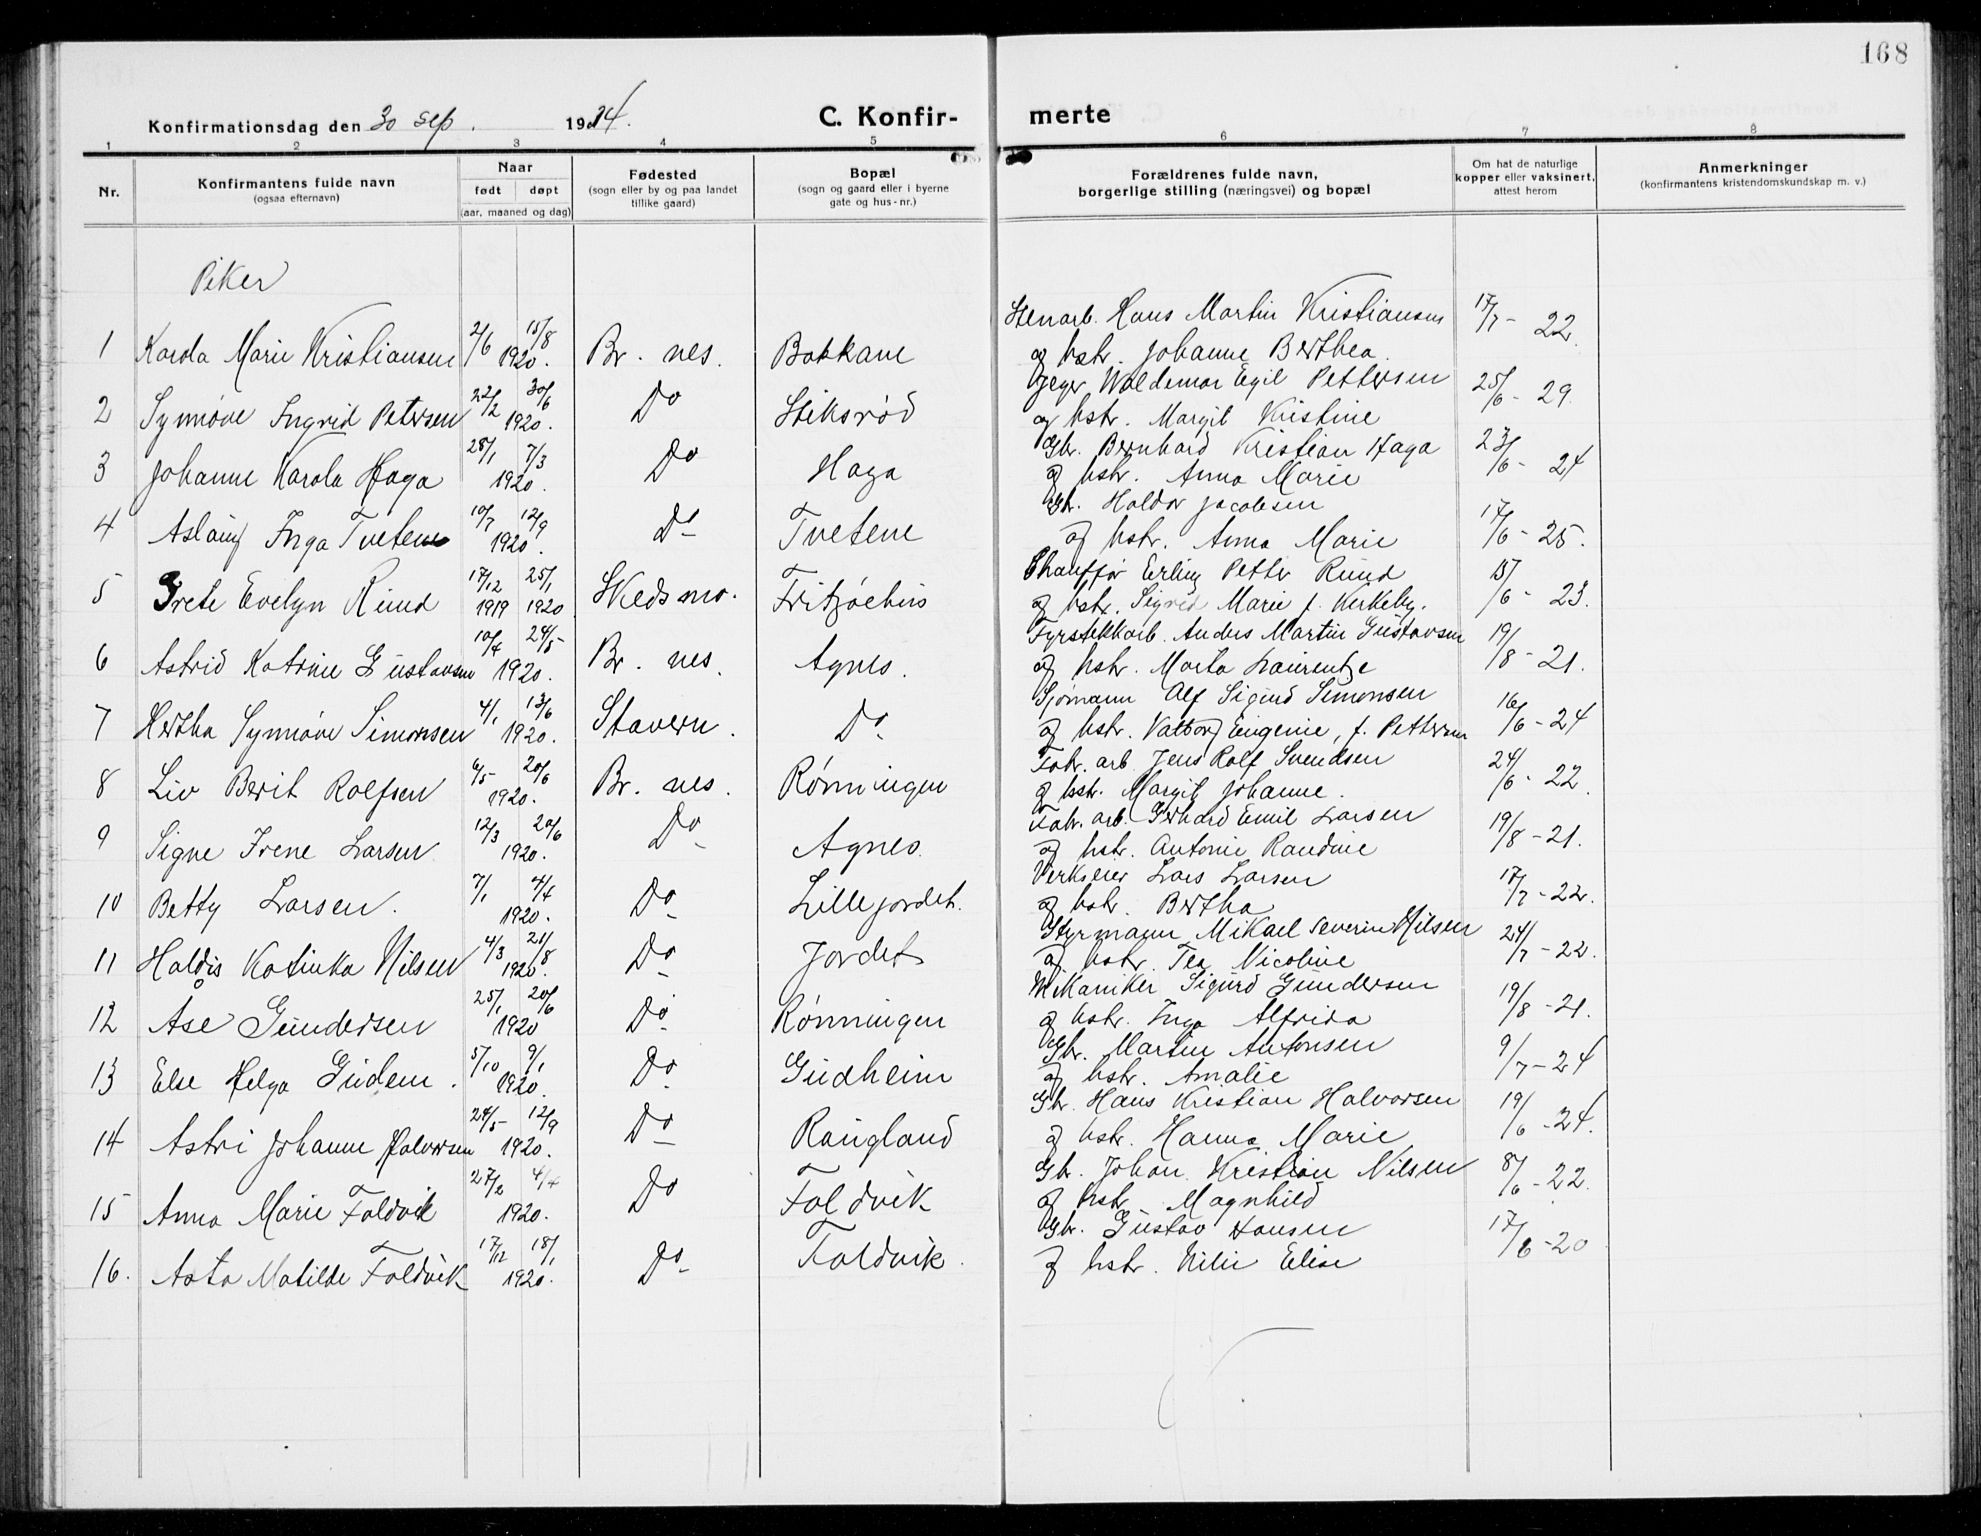 168
Konfirmationsdag den 30 sep. 1934.
C. Konfir-
merte
1 2 3 4 5 6 7 8
Nr.
Konfirmantens fulde navn
(ogsaa efternavn)
Naar
født døpt
(aar, maaned og dag)
Fødested
(sogn eller by og paa landet
tillike gaard)
Bopæl
(sogn og gaard eller i byerne
gate og hus-nr.)
Forældrenes fulde navn,
borgerlige stilling (næringsvei) og bopæl
Om hat de naturlige
kopper eller vaksinert,
attest herom
Anmerkninger
(konfirmantens kristendomskundskap m. v.)
Piker
Stenarb. Hans Martin Kristiansen 17/7 - 22.
1 Karola Marie Kristiansen 2/6 15/8 1920. Br. nes. Bakkane
og hstr. Johanne Berthea.
Jeger Waldemar Egil Pettersen 25/6 - 29.
2 Synnøve Ingrid Petersen 22/2 30/6 1920. Do Stiksrød
og hstr. Margit Kristine
Gbr. Bernhard Kristian Haga 23/6 - 24
3 Johanne Karola Haga 28/1 7/3 1920. Do Haga
og hstr. Anna Marie
Gbr. Haldor Jacobsen
4 Aslaug Inga Tvetene 10/7 12/9 1920. Do Tvetene
og hstr. Anna Marie 17/6 - 25.
Chauffør Erling Petter Ruud
5 Grete Evelyn Ruud 17/12 1919 25/1 1920 Skedsmo. Fritzøehus
og hstr. Sigrid Marie f. Kirkeby. 15/6 - 23.
Fyrstikkarb. Anders Martin Gustavsen
6 Astrid Katrine Gustavsen 10/4 24/5 1920. Br. nes. Agnes.
og hstr. Marta Laurentze 19/8 - 21.
Sjømann Alf Sigurd Simonsen
7 Hertha Synnøve Simonsen 4/1 13/6 1920. Stavern. Do
og hstr. Valborg Eugenie, f. Pettersen 16/6 - 24
Fabr. arb. Jens Rolf Svendsen
8 Liv Berit Rolfsen 6/5 20/6 1920. Br. nes. Rønningen
og hstr. Margit Johanne. 24/6 - 22.
Fabr. arb. Gerhard Emil Larsen
9 Signe Irene Larsen 12/3 20/6 1920. Do Agnes.
og hstr. Antonie Randine 19/8 - 21.
Verkseier Lars Larsen
10 Betty Larsen. 7/1 4/4 1920. Do Lillejordet.
og hstr. Bertha 17/7 - 22.
Styrmann Mikael Severin Nilsen
11 Haldis Katinka Nilsen 4/3 21/8 1920. Do Jordet
og hstr. Tea Nicoline 24/7 - 22.
Mekaniker Sigurd Gundersen
12 Åse Gundersen 25/1 20/6 1920 Do Rønningen
og hstr. Inga Alfrida 19/8 - 21.
Gbr. Martin Antonsen
13 Else Helga Gudem. 5/10 9/1 1920. Do Gudheim
og hstr. Amalie 9/7 - 24
Gbr. Hans Kristian Halvorsen
14 Astri Johanne Halvorsen 24/5 12/9 1920. Do Raugland
og hstr. Hanna Marie 19/6 - 24.
Gbr. Johan Kristian Nilsen
15 Anna Marie Foldvik 27/2 4/4 1920. Do Foldvik
og hstr. Magnhild 8/6 - 22.
Gbr. Gustav Hansen
16. Asta Matilde Foldvik 17/12 18/1 1920. Do Foldvik.
og hstr. Nilii Elise 17/6 - 20